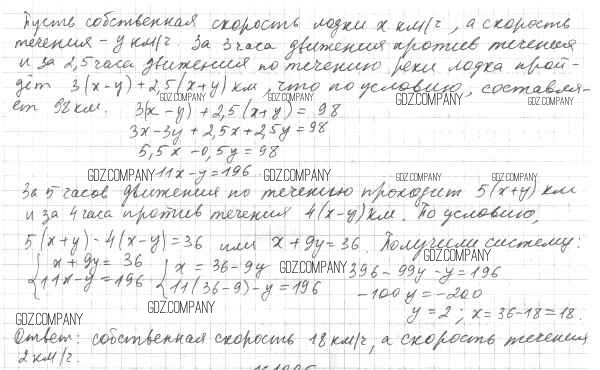 Пусть собственная скорость лодки x км/ч, а скорость
течения - y км/ч. За 3 часа движения против течения
и за 2,5 часа движения по течению реки лодка прой-
дёт 3(x-y)+2,5(x+y) км, что по условию, составля-
ет 98 км. 3(x-y)+2,5(x+y)=98
GDZ.COMPANY GDZ.COMPANY GDZ.COMPANY GDZ.COMPANY
3x-3y+2,5x+2,5y=98
5,5x-0,5y=98
GDZ.COMPANY 11x-y=196 GDZ.COMPANY GDZ.COMPANY GDZ.COMPANY
За 5 часов движения по течению проходит 5(x+y) км
и за 4 часа против течения 4(x-y) км. По условию,
5(x+y)-4(x-y)=36 или x+9y=36. Получим систему:
GDZ.COMPANY
{x+9y=36 {x=36-9y GDZ.COMPANY 396-99y-y=196
{11x-y=196 {11(36-9)-y=196 -100y=-200
GDZ.COMPANY
y=2; x=36-18=18.
GDZ.COMPANY
Ответ: собственная скорость 18 км/ч, а скорость течения
2 км/ч.